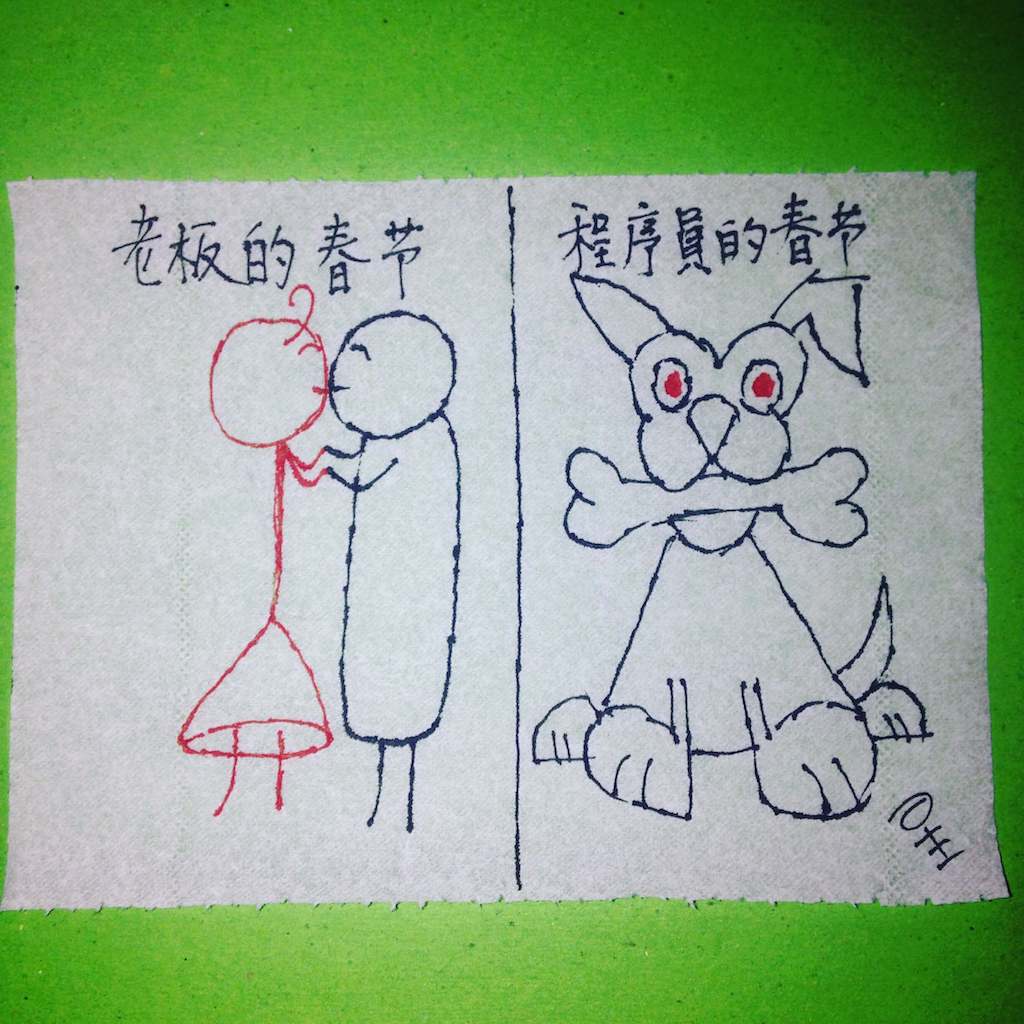 老板的春节
程序員的春节